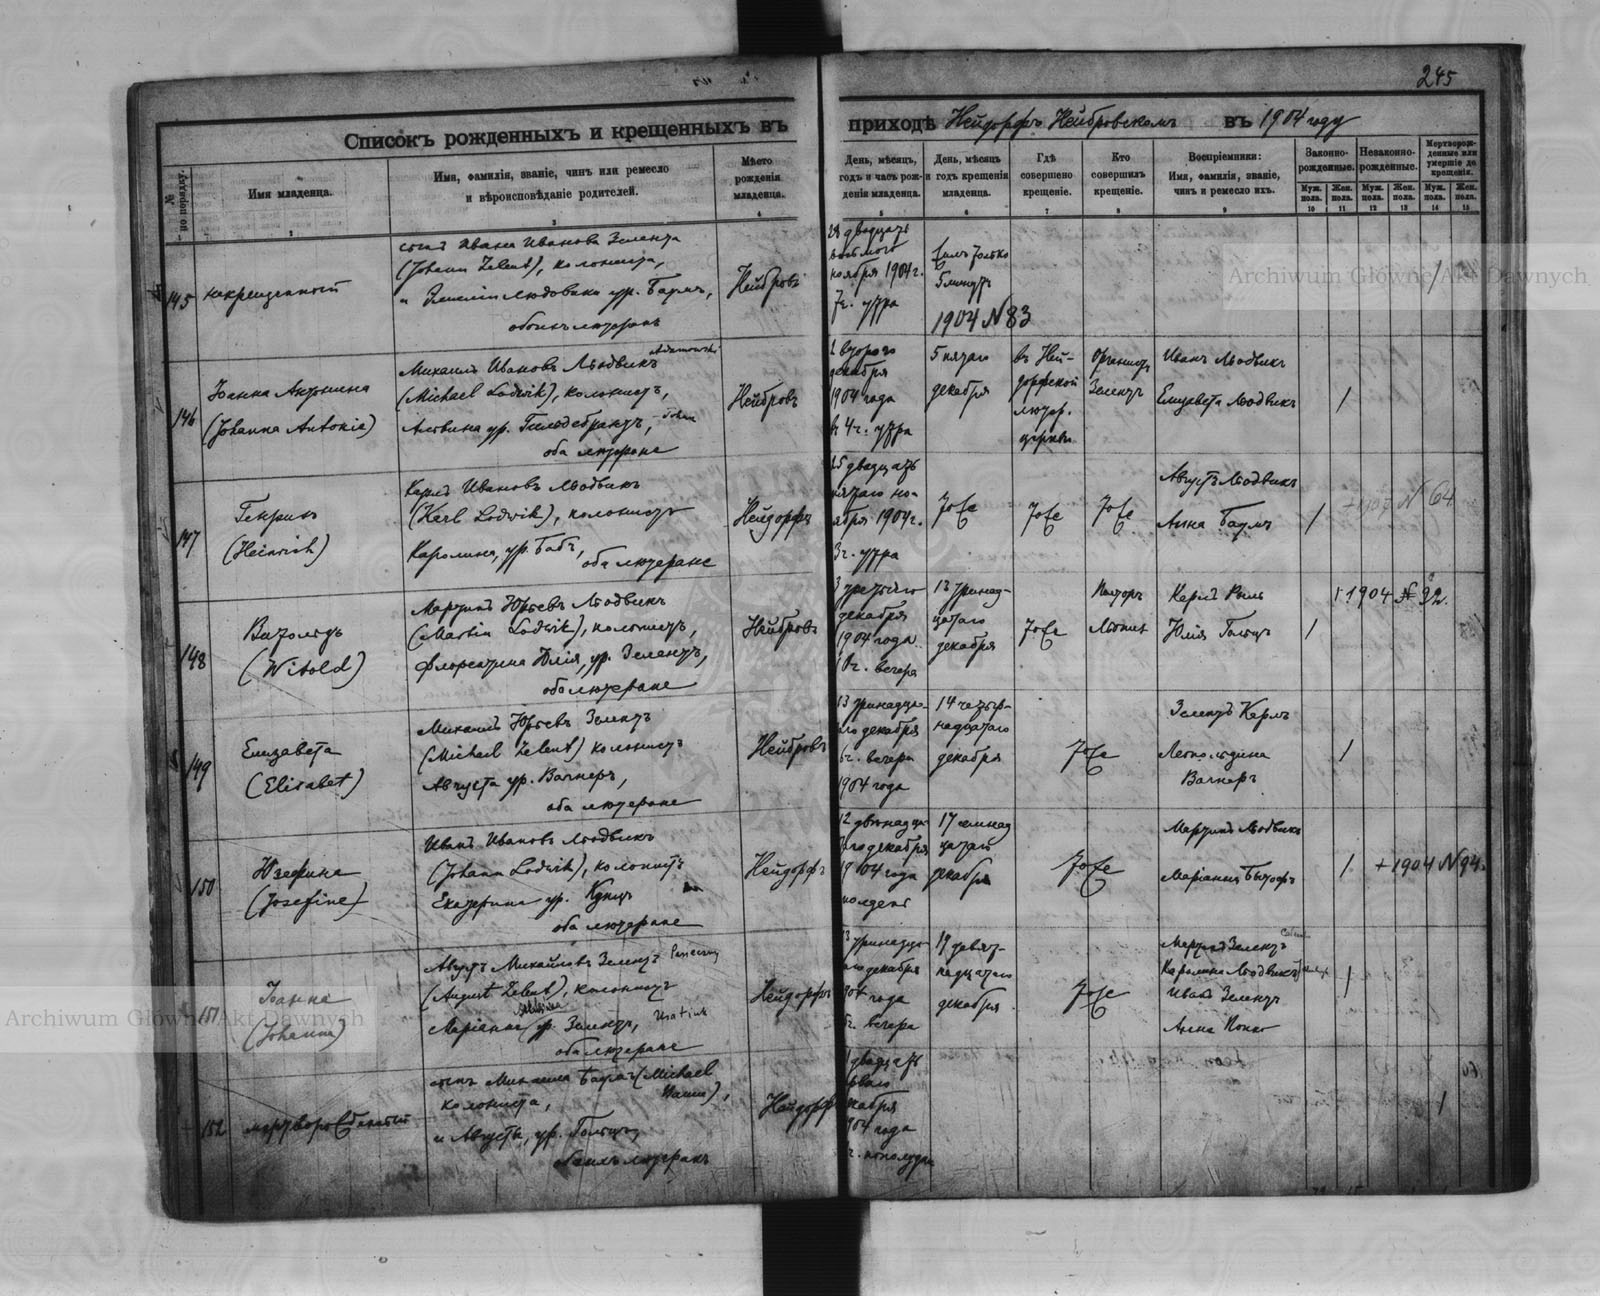 245
Списокъ рожденныхъ и крещенныхъ въ приходѣ Нейдорфъ Нейбровскомъ въ 1904 году
№ по порядку.
Имя младенца.
Имя, фамилія, званіе, чинъ или ремесло
и вѣроисповѣданіе родителей.
Мѣсто
рожденія
младенца.
День, мѣсяцъ,
годъ и часъ рож-
денія младенца.
День, мѣсяцъ
и годъ крещенія
младенца.
Гдѣ
совершено
крещеніе.
Кто
совершилъ
крещеніе.
Воспріемники:
Имя, фамилія, званіе,
чинъ и ремесло ихъ.
Законно-
рожденные.
Незаконно-
рожденные.
Мертворож-
денные или
умершіе до
крещенія.
Муж. пола. Жен. пола. Муж. пола. Жен. пола. Муж. пола. Жен. пола.
1 3 4 5 6 7 8 9 10 11 12 13 14 15
145
некрещенный
сынъ Ивана Иванова Зелента
(Johann Zelent), колониста,
и Эмиліи Людовики ур. Баумъ,
обоихъ лютеранъ
Нейбровъ
28 двадцать
восьмого
ноября 1904 г.
7 ч. утра
Жилъ только
5 минутъ
1904 N 83
/
146
Іоанна Антонина
(Johanna Antonie)
Михаилъ Ивановъ Людвикъ
(Michael Lodwik), колонистъ,
Альвина ур. Гильдебрандтъ,
оба лютеране
Нейбровъ
2 второго
декабря
1904 года
въ 4 ч. утра
5 пятаго
декабря
въ Ней-
дорфской
лютер.
церкви
Органистъ
Зелентъ
Иванъ Людвикъ
Елизавета Людвикъ
1
147
Генрихъ
(Heinrich)
Карлъ Ивановъ Людвикъ
(Karl Lodwik), колонистъ
Каролина, ур. Бабъ,
оба лютеране
Нейдорфъ
25 двадцать
пятаго но-
ября 1904 г.
3 ч. утра
тоже
тоже
тоже
Августъ Людвикъ
Анна Баумъ
1
N 64
148
Витольдъ
(Witold)
Мартинъ Юрьевъ Людвикъ
(Martin Lodwik), колонистъ,
Флорентина Юлія, ур. Зелентъ,
оба лютеране
Нейбровъ
3 третьяго
декабря
1904 года
10 ч. вечера
13 тринад-
цатаго
декабря
тоже
Пасторъ
Карлъ Риль
Юлія Гольцъ
1
+ 1904 № 92.
149
Елизавета
(Elisabet)
Михаилъ Юрьевъ Зелентъ
(Michael Zelent) колонистъ
Августа ур. Вагнеръ,
оба лютеране
Нейбровъ
13 тринадца-
таго декабря
6 ч. вечера
1904 года
14 четыр-
надцатаго
декабря
тоже
Зелентъ Карлъ
Леопольдина
Вагнеръ
1
150
Юзефина
(Josefine)
Иванъ Ивановъ Людвикъ
(Johann Lodwik), колонистъ
Екатерина ур. Кунцъ
оба лютеране
Нейдорфъ
12 двѣнадца-
таго декабря
1904 года
полдень
17 семнад
цатаго
декабря
тоже
Мартинъ Людвикъ
Маріанна
1
+ 1904 N 94.
151
Іоанна
(Johanna)
Августъ Михайловъ Зелентъ
(August Zelent), колонистъ
Маріанна ур. Зелентъ,
оба лютеране
Нейдорфъ
13 тринадца-
таго декабря
1904 года
6 ч. вечера
19 девят-
надцатаго
декабря
тоже
Мартинъ Зелентъ
Каролина Людвикъ
Иванъ Зелентъ
Анна Попко
1
152
мертворожденный
сынъ Михаила Баумъ (Michael
Baum),
колониста,
и Августы, ур. Гольцъ,
обоихъ лютеранъ
Нейдорфъ
21 двадцать
перваго
декабря
1904 года
ч. пополудни
1
Archiwum Główne Akt Dawnych
Archiwum Główne Akt Dawnych